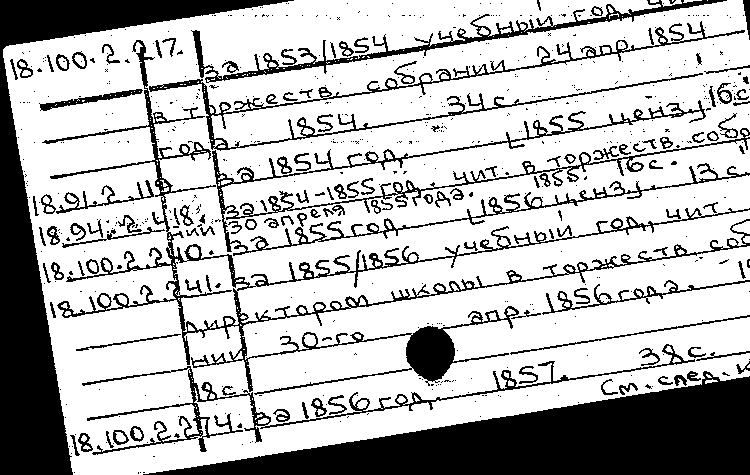 18.100.2.217. за 1853/1854 учебный год, чит.
в торжеств. собрании 24 апр. 1854
года. 1854. 34 с.
18.91.2.119 за 1854 год. [1855 ценз.]. 16 с.
18.94.2.418. за 1854-1855 год. чит. в торжеств. собра
нии 30 апреля 1855 года. 1855. 16 с.
18.100.2.240. за 1855 год. [1856 ценз.]. 13 с.
18.100.2.241. за 1855/1856 учебный год, чит.
директором школы в торжеств. соб
нии 30-го апр. 1856 года.
18 с.
18.100.2.274. за 1856 год. 1857. 38 с.
См. след. к